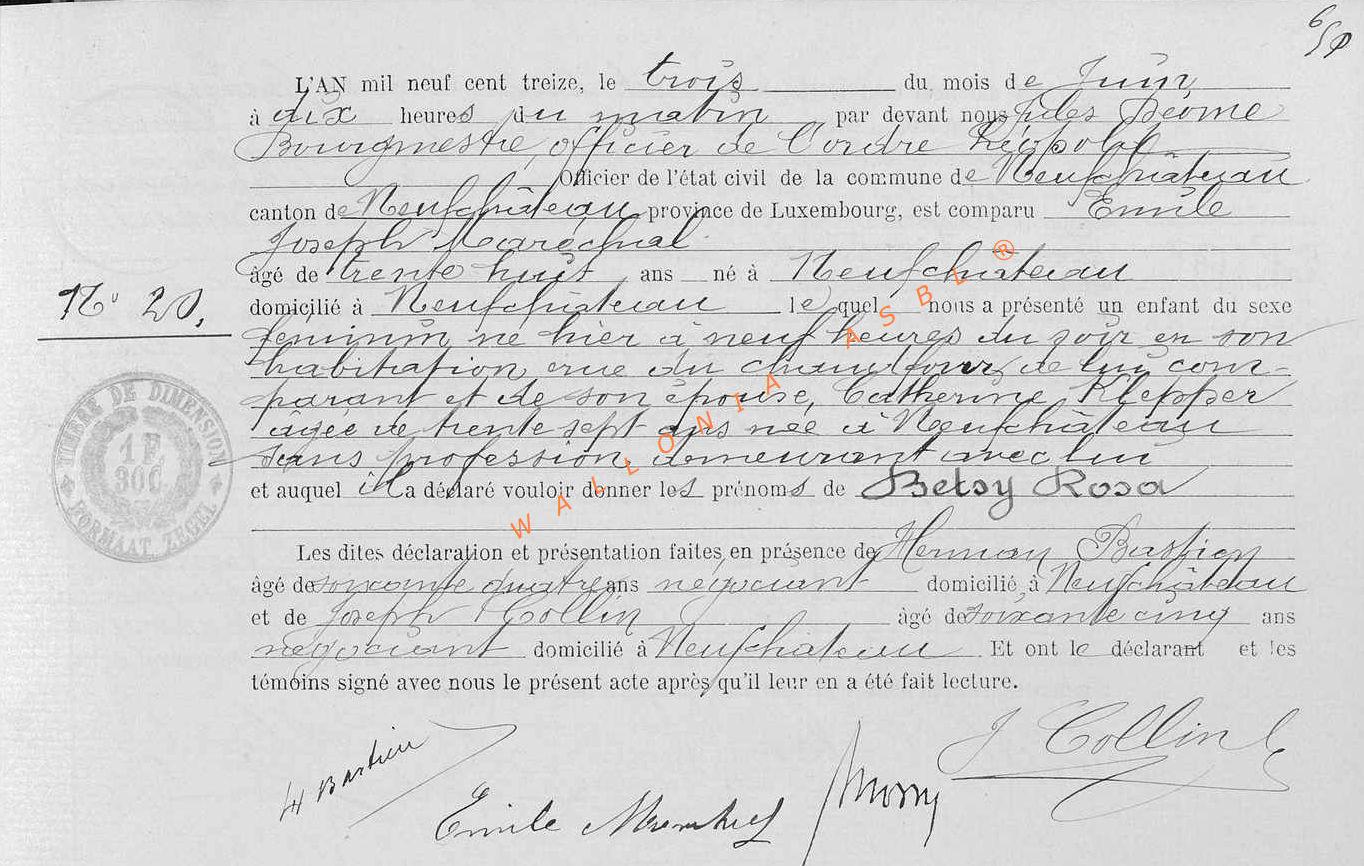 6/50
L'AN mil neuf cent treize, le trois du mois de Juin
à dix heures du matin par devant nous Jules
Bourgmestre, officier de l'ordre Léopold
Officier de l'état civil de la commune de Neufchâteau
canton de Neufchâteau province de Luxembourg, est comparu Emile
Joseph Maréchal
âgé de trente huit ans né à Neufchâteau
domicilié à Neufchâteau lequel nous a présenté un enfant du sexe
N° 20.
féminin né hier à neuf heures du soir en son
habitation rue du chaudfour, de lui com-
parant et de son épouse, Catherine Klepper
âgée de trente sept ans née à Neufchâteau
sans profession demeurant avec lui
et auquel il a déclaré vouloir donner les prénoms de Betsy Rosa
Les dites déclaration et présentation faites en présence de Hernan Bastien
âgé de soixante quatre ans négociant domicilié à Neufchâteau
et de Joseph Collin âgé de soixante cinq ans
négociant domicilié à Neufchateau Et ont le déclarant et les
témoins signé avec nous le présent acte après qu'il leur en a été fait lecture.
H Bastien
Emile
J Collin
TIMBRE DE DIMENSION
1 F.
30 C.
FORMAAT ZEGEL
WALLONIA ASBL ®